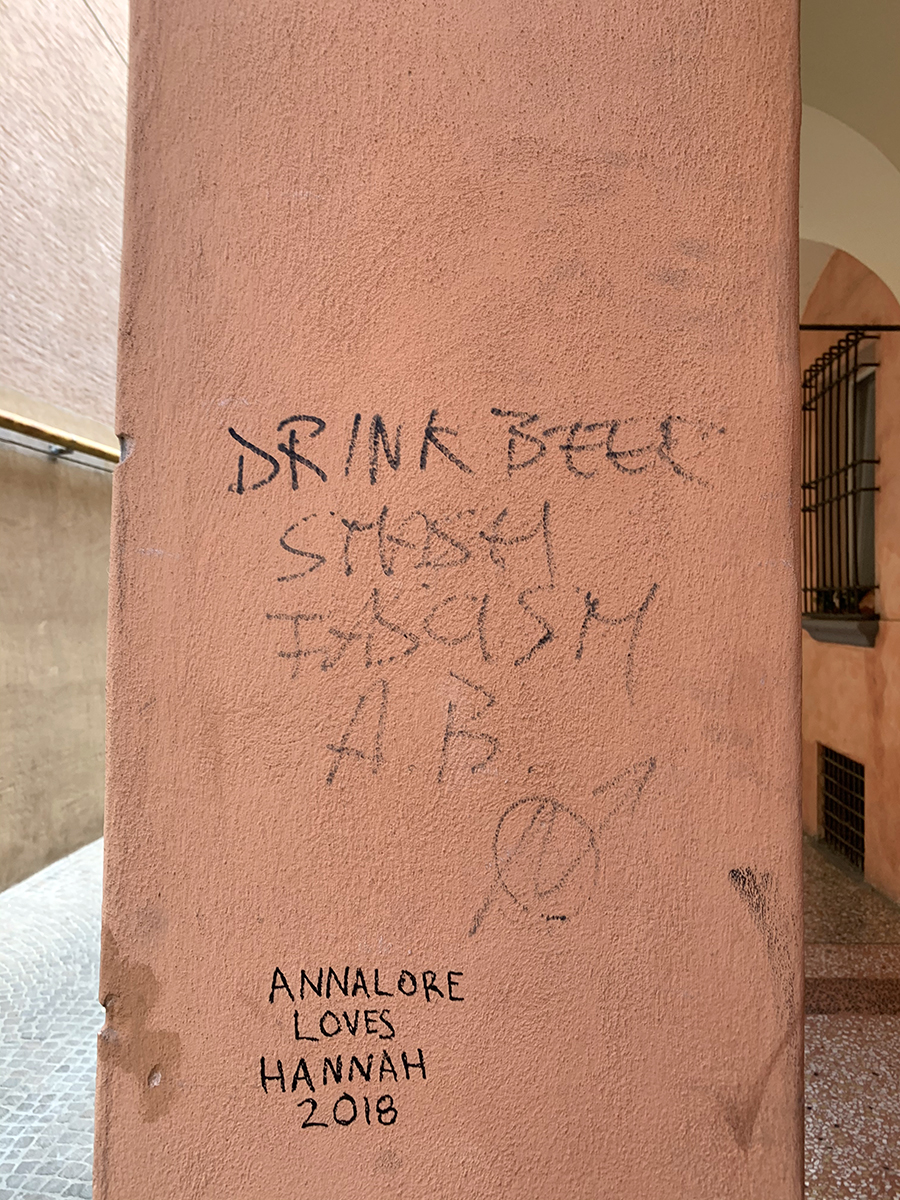 DRINK BEER
SMASH
FASCISM
A.B.
ANNALORE
LOVES
HANNAH
2018